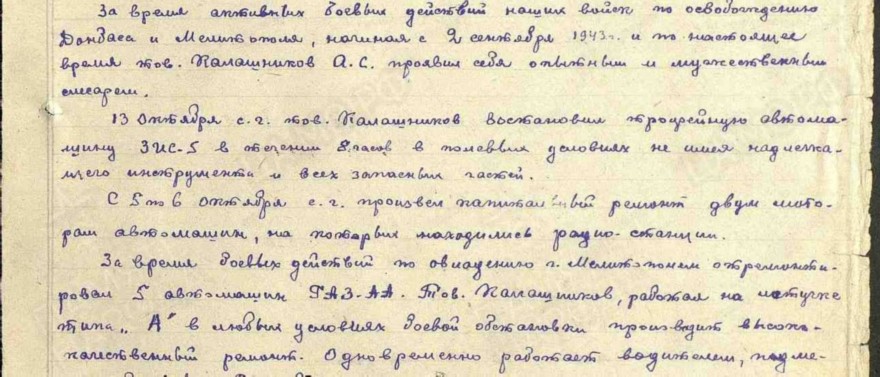 За время активных боевых действий наших войск по освобождению
Донбаса и Мелитополя, начиная с 2 сентября 1943 г. и по настоящее
время тов. Калашников А.С. проявил себя опытным и мужественным
слесарем.
13 октября с.г. тов. Калашников востановил трофейную автома-
шину ЗИС-5 в течении 8 часов в полевых условиях не имея надлежа-
щего инструмента и всех запасных частей.
С 5 по 6 октября с.г. произвел капитальный ремонт двум мото-
рам автомашин, на которых находились радио-станции.
За время боевых действий по овладению г. Мелитополем отремонти-
ровал 5 автомашин ГАЗ-АА. Тов. Калашников, работая на летучке
типа „А" в любых условиях боевой обстановки производит высоко-
качественный ремонт. Одновременно работает водителем, подме-